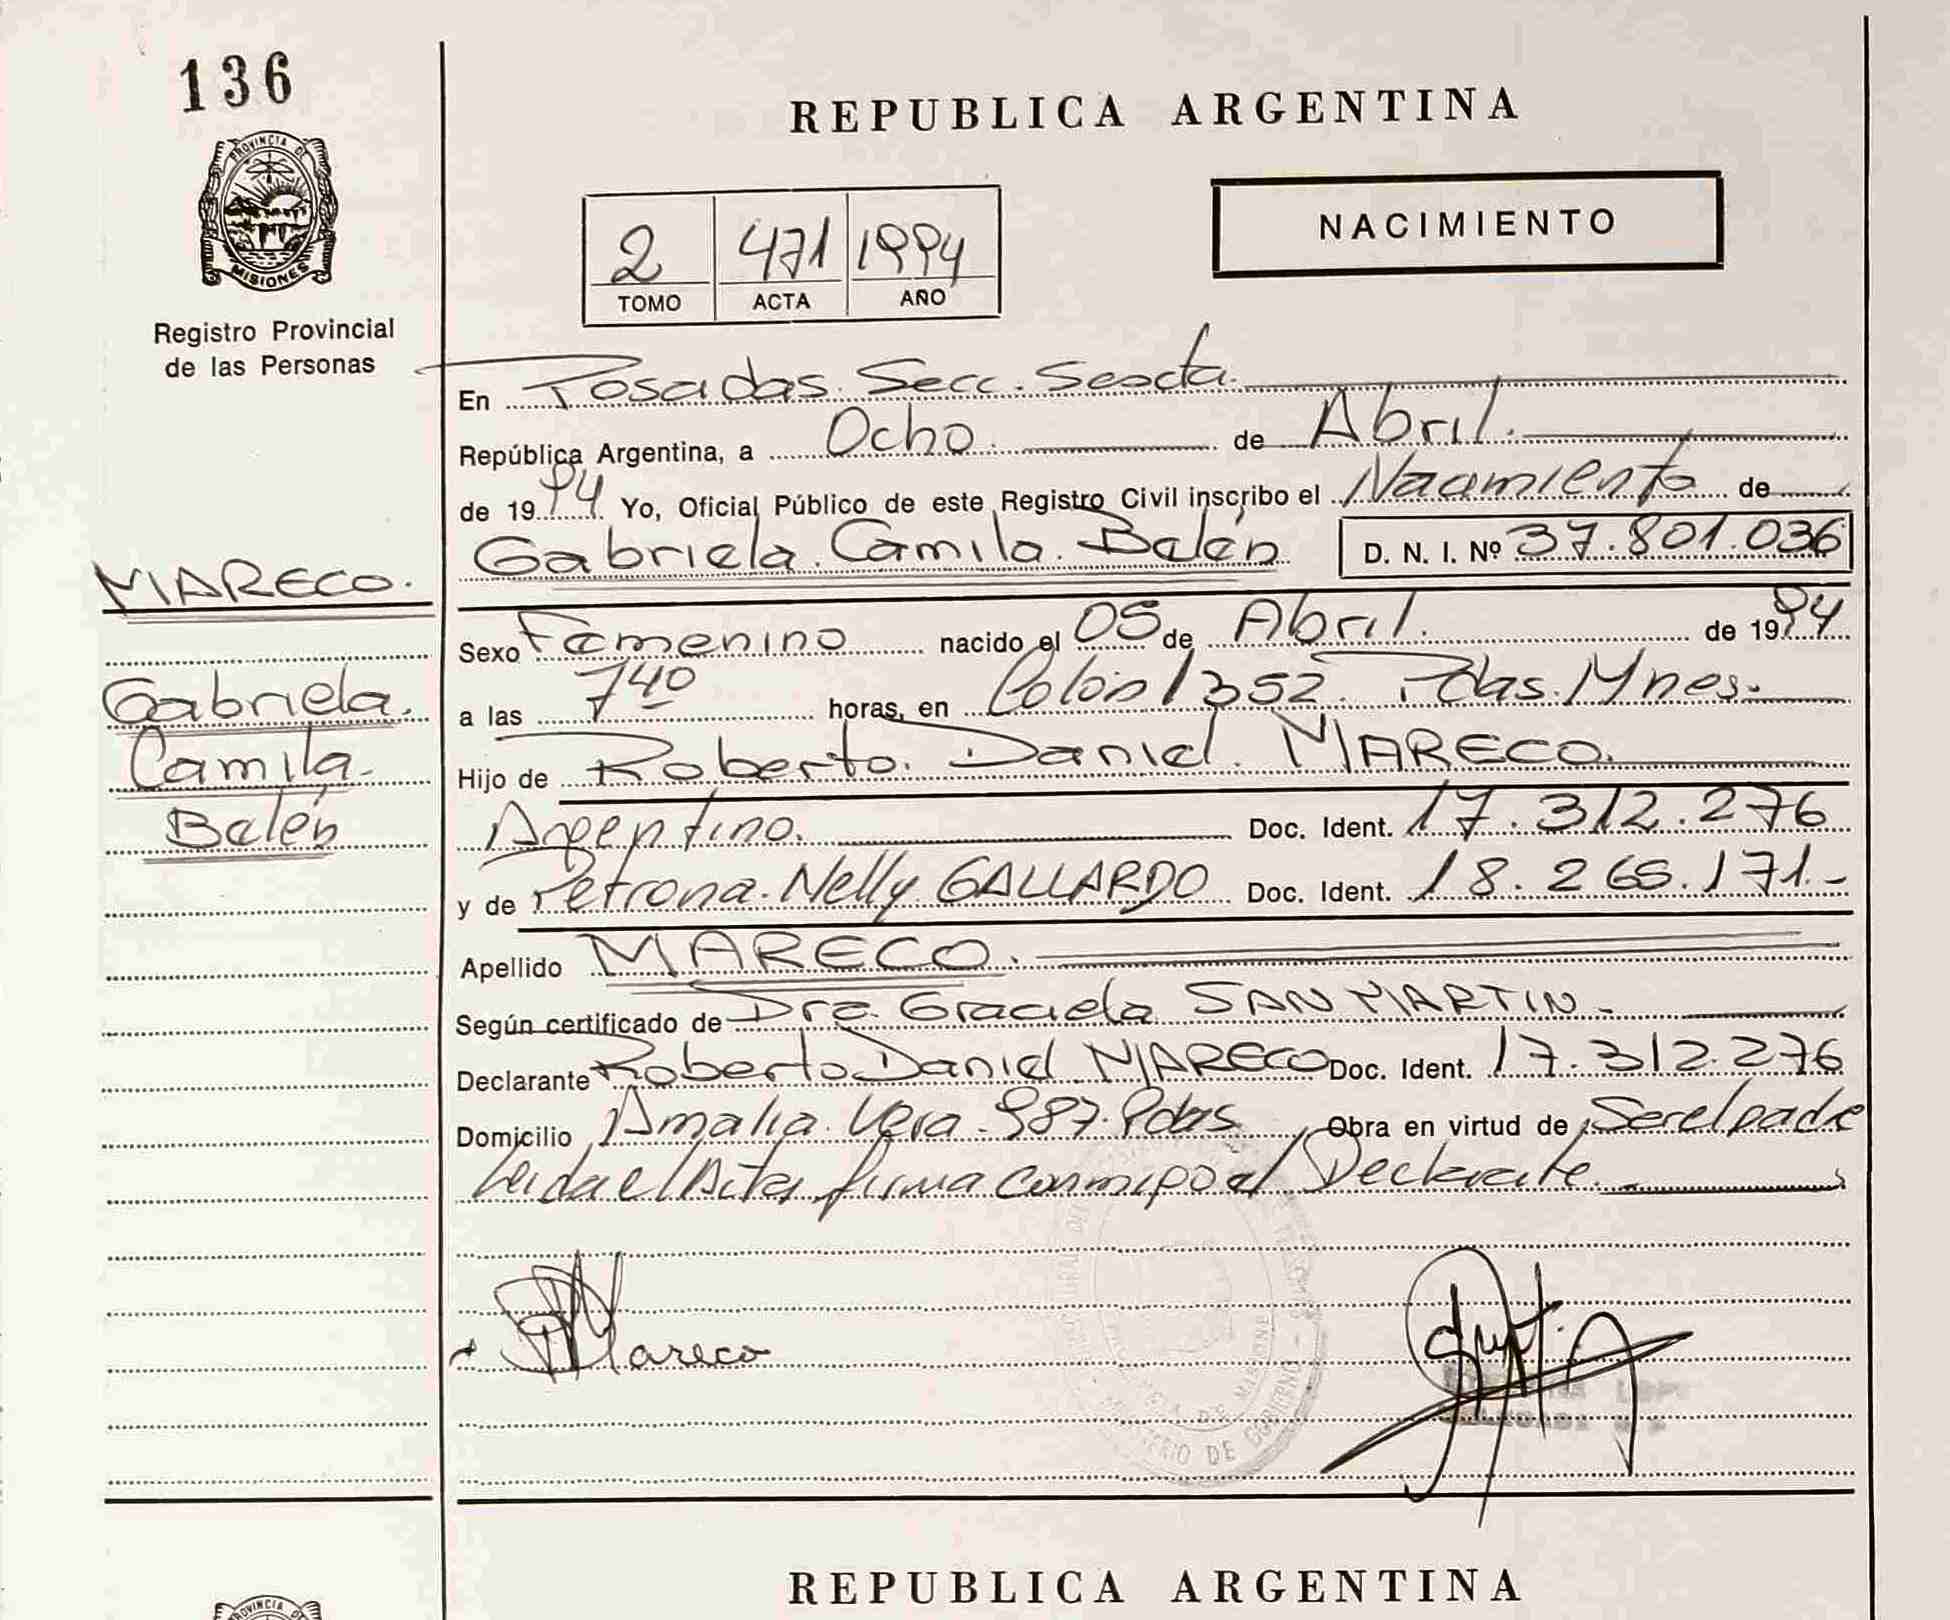 136
PROVINCIA DE
MISIONES
Registro Provincial
de las Personas
REPUBLICA ARGENTINA
NACIMIENTO
2 471 1994
TOMO ACTA AÑO
En Posadas. Secc. Sexta.
República Argentina, a Ocho. de Abril.
de 1994 Yo, Oficial Público de este Registro Civil inscribo el Nacimiento de
Gabriela. Camila. Belén D. N. I. Nº 37.801.036
MARECO.
Gabriela.
Camila.
Belén
Sexo Femenino nacido el 05 de Abril. de 1994
a las 7 40 horas, en Colón 1352. Pdas. Mnes.
Hijo de Roberto. Daniel. MARECO.
Argentino. Doc. Ident. 17.312.276
y de Petrona. Nelly. GALLARDO Doc. Ident. 18.265.171.-
Apellido MARECO.
Según certificado de Dra. Graciela SAN MARTIN.
Declarante Roberto Daniel MARECO Doc. Ident. 17.312.276
Domicilio Amalia. Vera. 987. Pdas Obra en virtud de Ser el padre
Leida el Acta firma conmigo el Declarante.
Mareco
MINISTERIO DE GOBIERNO
REPUBLICA ARGENTINA
PROVINCIA DE